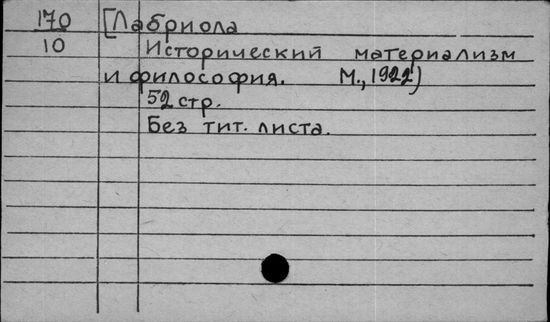 170 [Лабриола
10 Исторический материализм
и философия. М., 1922)
52 стр.
Без тит. листа.